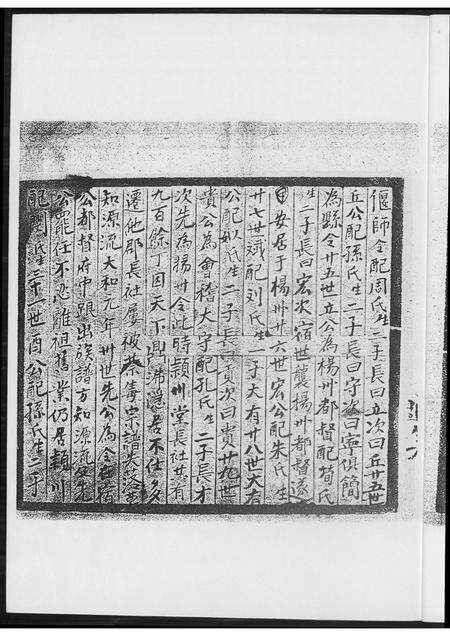 偃師令配周氏生二子長曰立次曰丘廿五世
丘公配孫氏生二子長曰守次曰寧俱簡
為縣令廿五世立公為楊州都督配荀氏
生二子長曰宏次宿世襲楊州都督遂
安居于楊州廿六世宏公配朱氏生
廿七世斌配刘氏生一子大有廿八世大有
公配姒氏生二子長曰貢次曰貴廿九世
貴公為會稽大守配孔氏生二子長才
次先為揚州令此時頴州堂長社共有
九百餘丁因天下鼎沸居不仕多
遷他郡長社屢被宗譜
知源流大和元年卅世先公為令
公都督府中跟出族譜方知源流先
公罷任不忍離祖舊業仍居頴川
配周氏生卅一世酉公配孫氏生二子